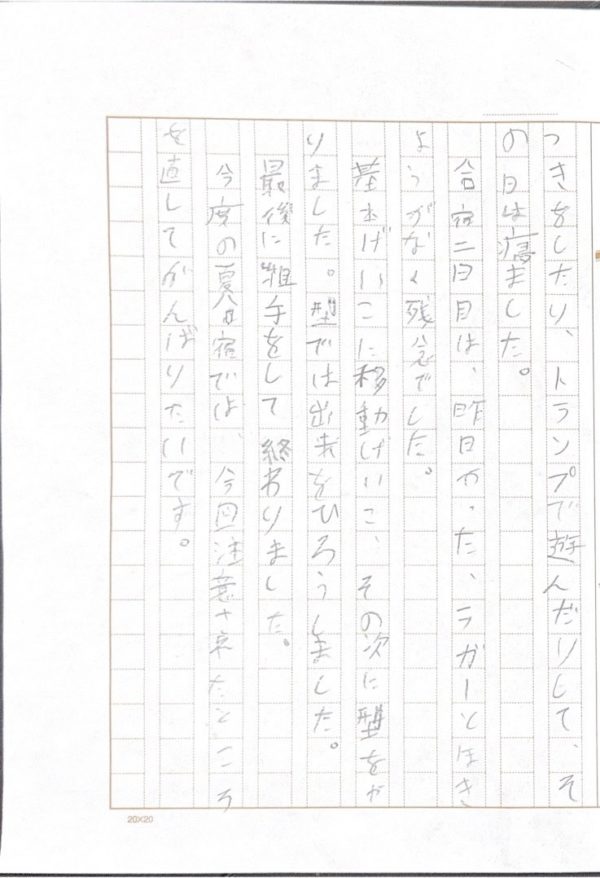 つきをしたり、トランプで遊んだりして、そ
の日は寝ました。
合宿二日目は、昨日やった、ラガーとほき
ようがなく残念でした。
基本げいこに移動げいこ、その次に型をや
りました。型では出来をひろうしました。
最後に組手をして終わりました。
今度の夏合宿では、今回注意されたところ
を直してがんばりたいです。
20×20